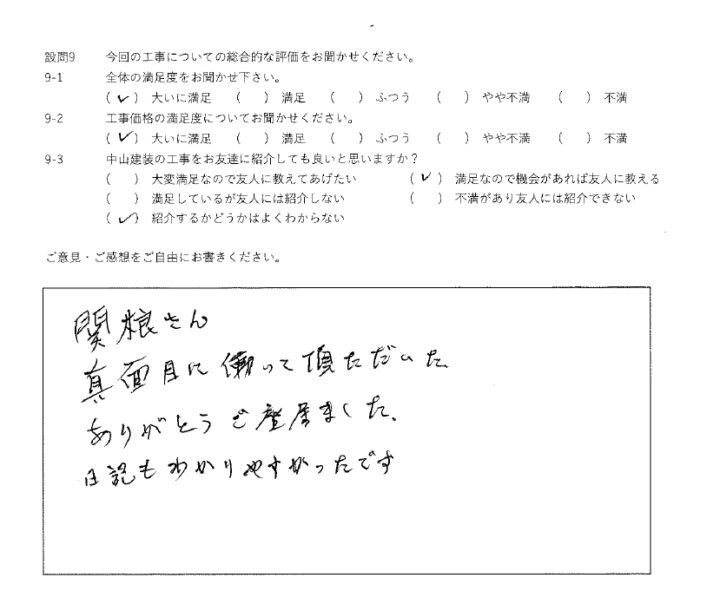 設問9 今回の工事についての総合的な評価をお聞かせください。
9-1 全体の満足度をお聞かせ下さい。
(✓) 大いに満足 ( ) 満足 ( ) ふつう ( ) やや不満 ( ) 不満
9-2 工事価格の満足度についてお聞かせください。
(✓) 大いに満足 ( ) 満足 ( ) ふつう ( ) やや不満 ( ) 不満
9-3 中山建装の工事をお友達に紹介しても良いと思いますか？
( ) 大変満足なので友人に教えてあげたい (✓) 満足なので機会があれば友人に教える
( ) 満足しているが友人には紹介しない ( ) 不満があり友人には紹介できない
(✓) 紹介するかどうかはよくわからない
ご意見・ご感想をご自由にお書きください。
関根さん
真面目に働って頂ただいた
ありがとうご座居ました、
日記もわかりやすかったです